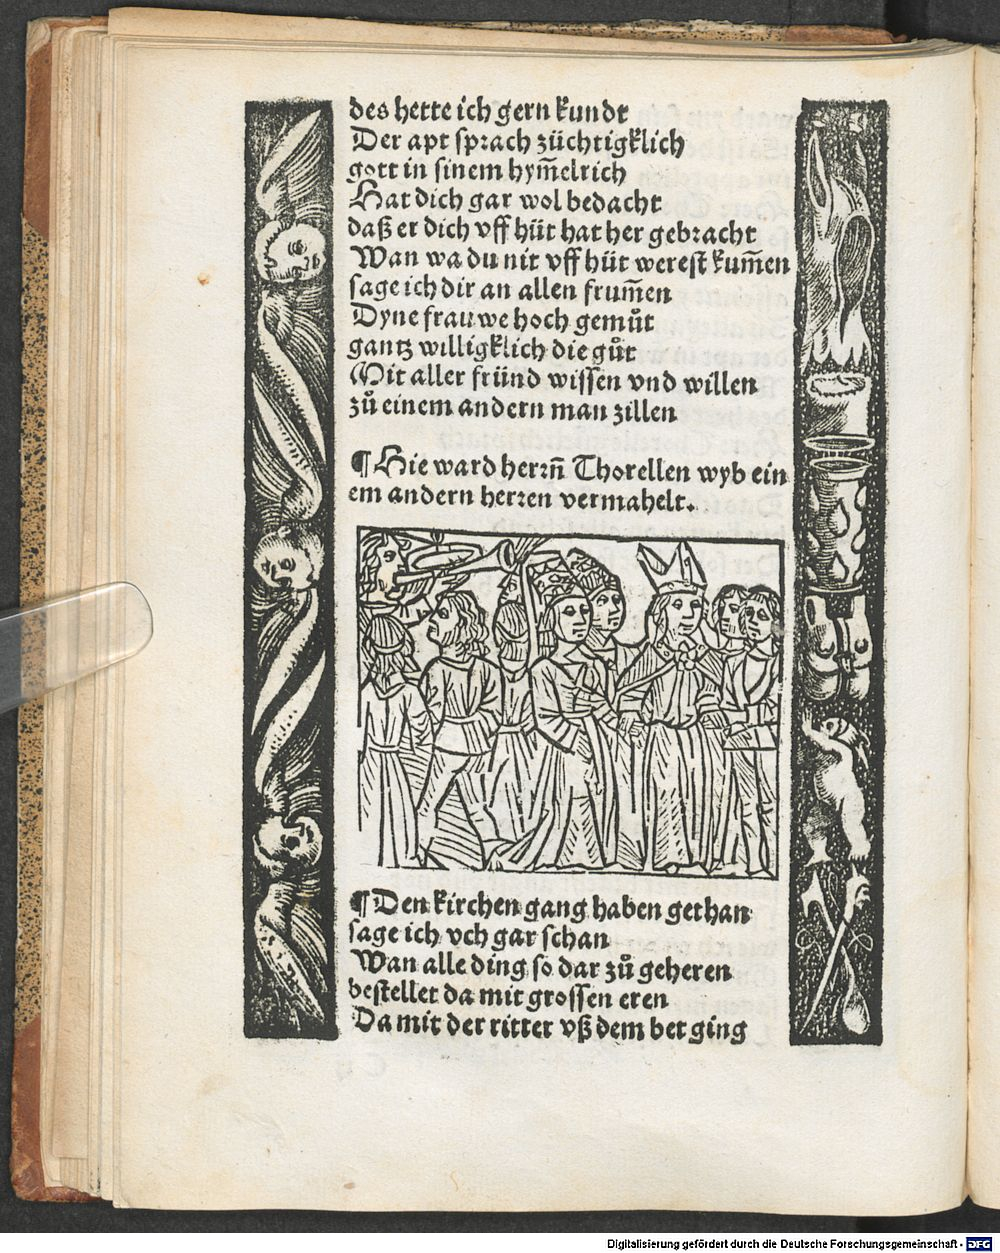 des hette ich gern kundt
Der apt sprach züchtigklich
gott in sinem hym̄elrich
Hat dich gar wol bedacht
daß er dich vff hüt hat her gebracht
Wan wa du nit vff hüt werest kum̄en
sage ich dir an allen frum̄en
Dyne frauwe hoch gemůt
gantz willigklich die gůt
Mit aller fründ wissen vnd willen
zů einem andern man zillen
¶ Hie ward herrn̄ Thorellen wyb ein
em andern herren vermahelt.
¶ Den kirchen gang haben gethan
sage ich vch gar schan
Wan alle ding so dar zů geheren
bestellet da mit grossen eren
Da mit der ritter vß dem bet ging
Digitalisierung gefördert durch die Deutsche Forschungsgemeinschaft - DFG